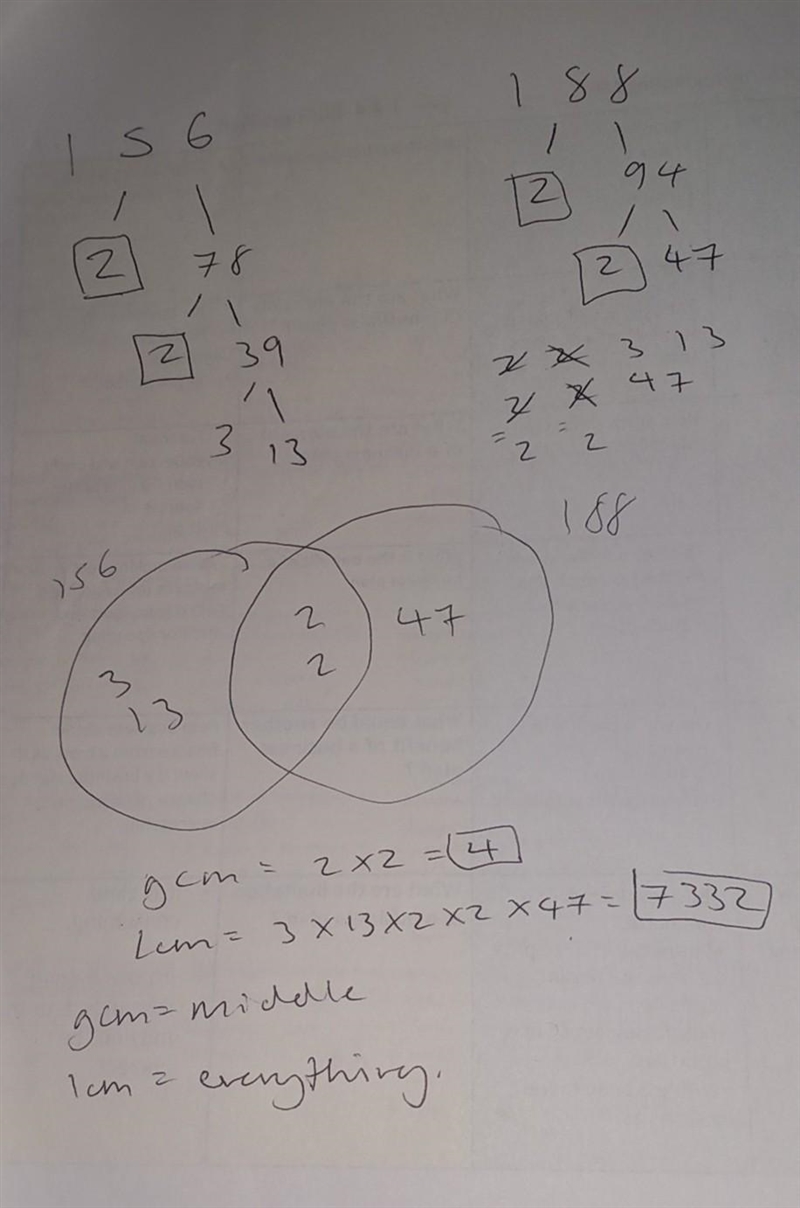 156
2 78
2 39
3 13
188
2 94
2 47
2 2 3 13
2 2 47
= 2 = 2
156
188
3
13
2
2
47
gcm = 2 x 2 = 4
Lcm = 3 x 13 x 2 x 2 x 47 = 7332
gcm = middle
lcm = everything.